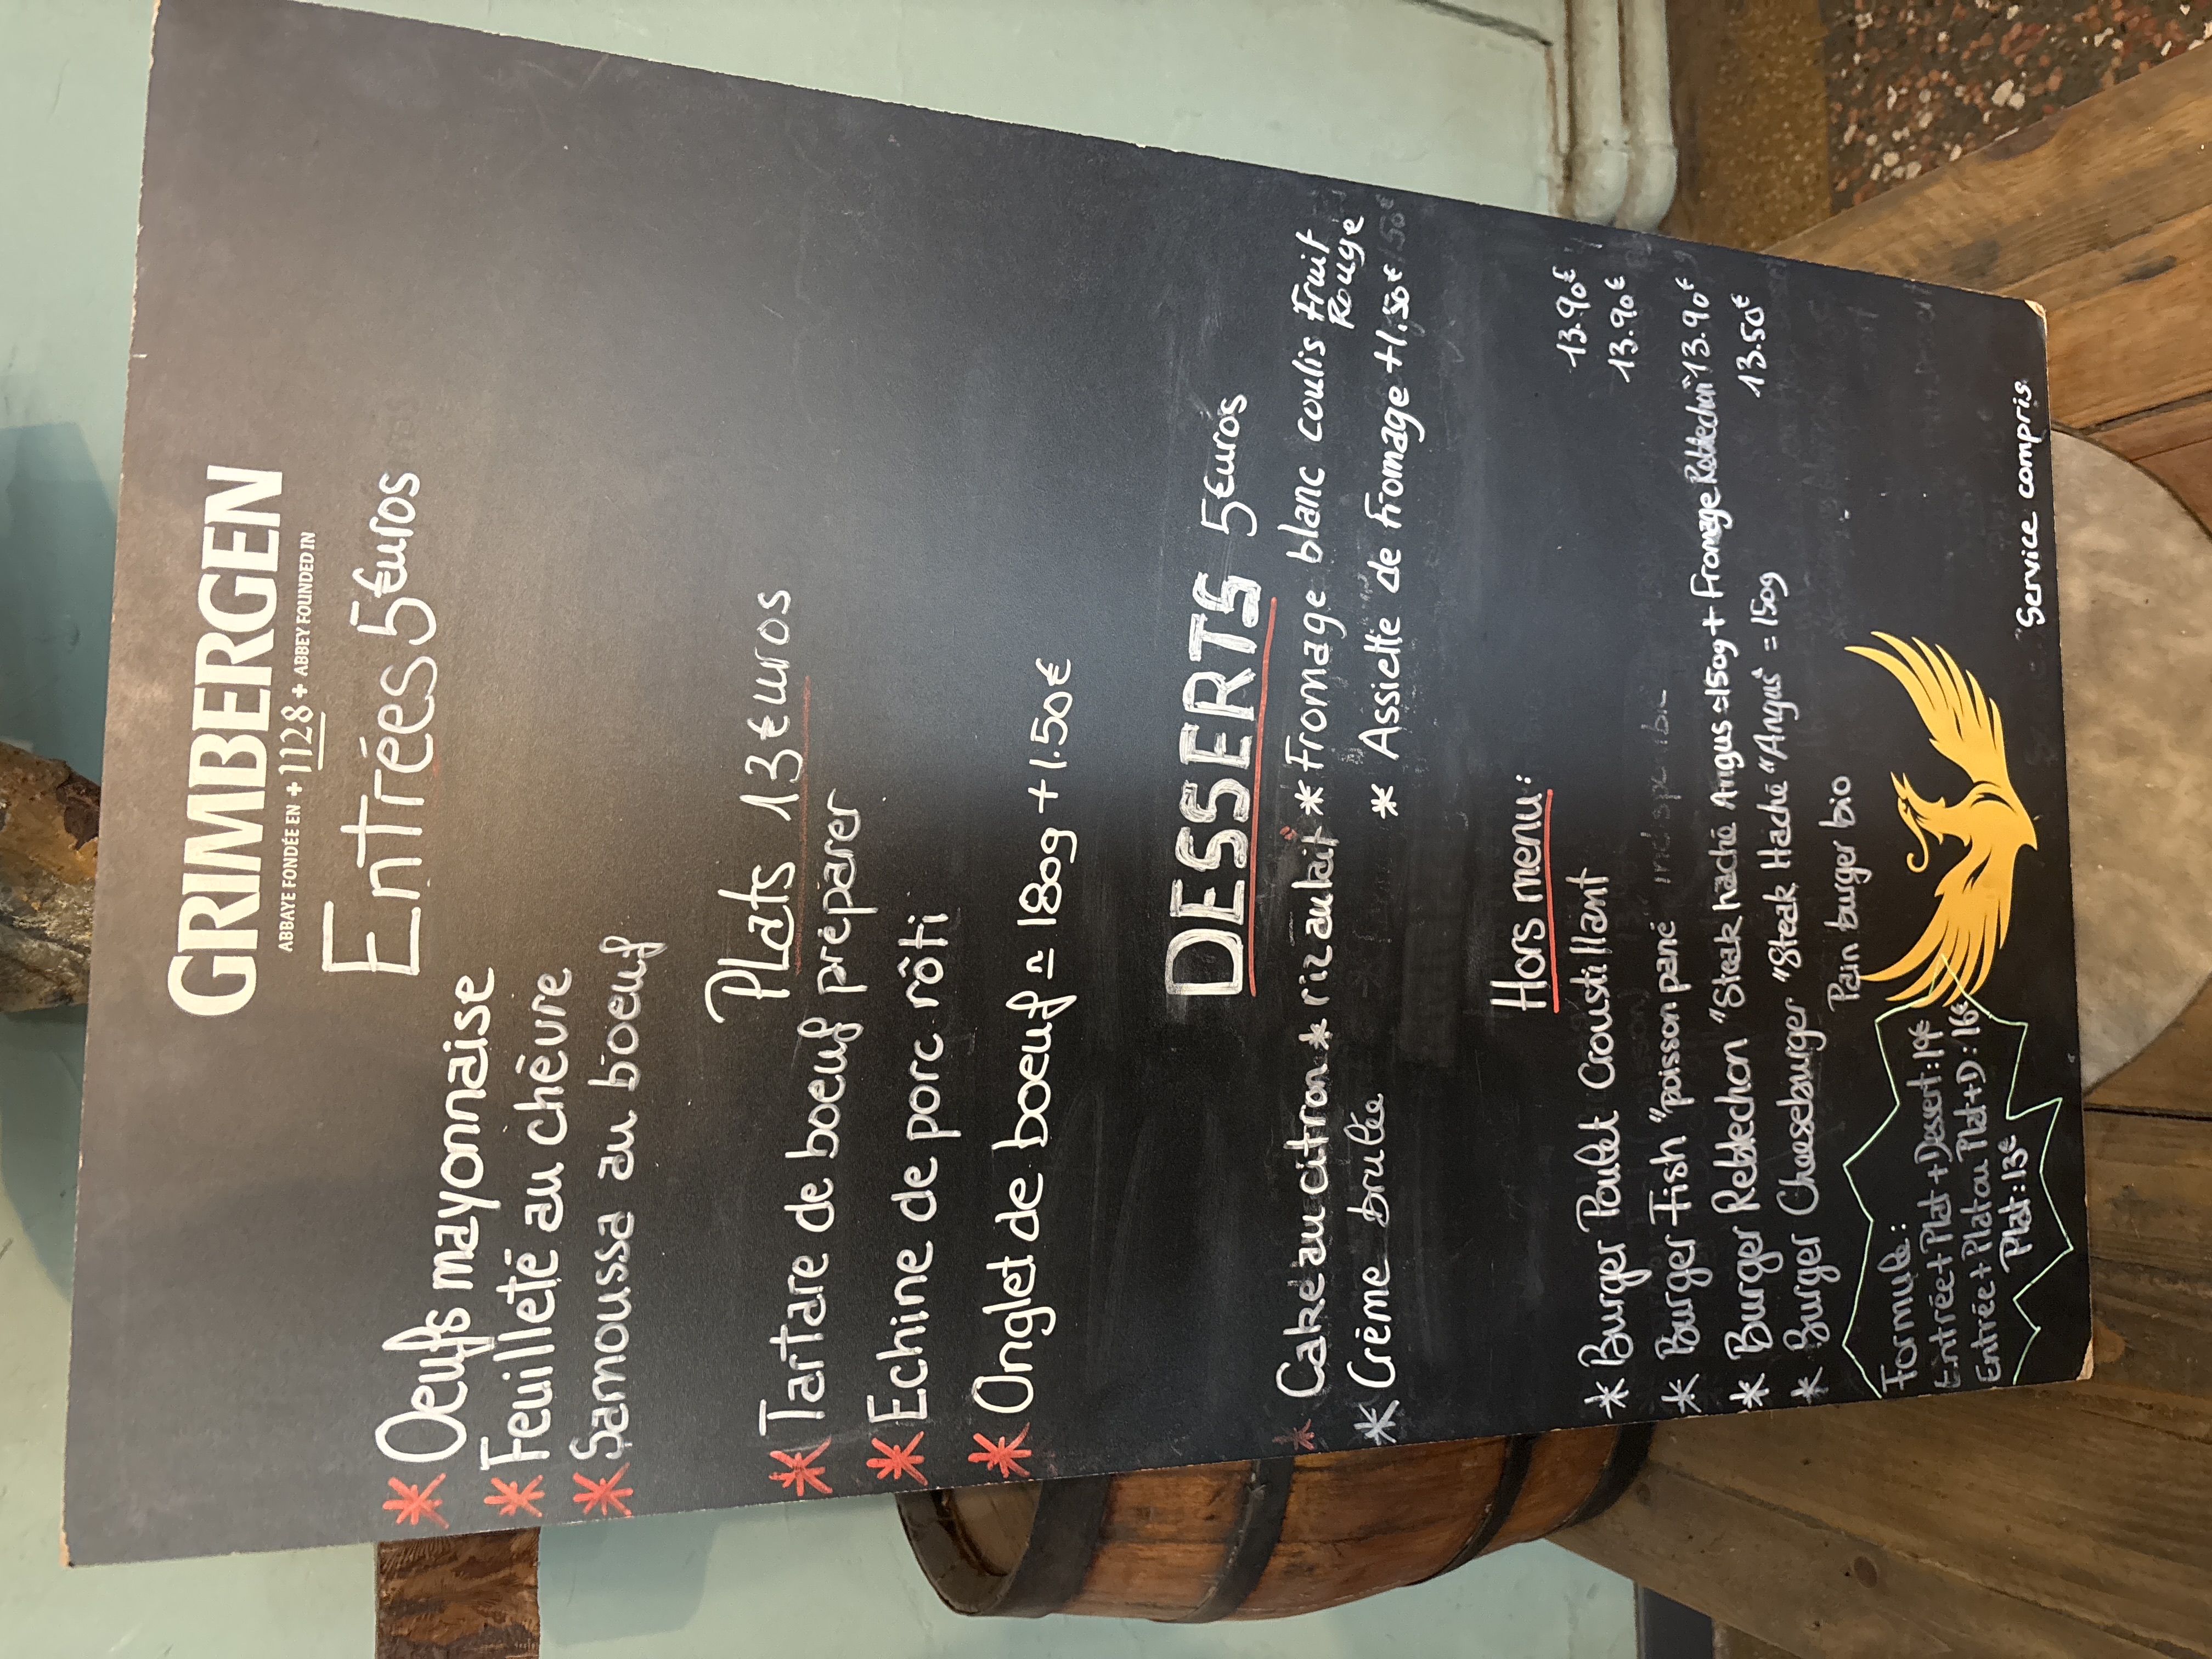 GRIMBERGEN
ABBAYE FONDÉE EN + 1128 + ABBEY FOUNDED IN
Entrées 5 euros
* Oeufs mayonnaise
* Feuilleté au chèvre
* Samoussa au boeuf
Plats 13 euros
* Tartare de boeuf préparer
* Echine de porc rôti
* Onglet de boeuf ≃ 180g + 1.50€
DESSERTS 5 euros
* Cake au citron * riz au lait * Fromage blanc coulis Fruit Rouge
* Crème brulée * Assiette de Fromage +1.50€
Hors menu:
* Burger Poulet Croustillant 13.90€
* Burger Fish "poisson pané 13.90€
* Burger Reblechon "Steak haché Angus = 150g + Fromage Reblechon" 13.90€
* Burger Cheeseburger "Steak Haché "Angus" = 150g 13.50€
Pain burger bio
Formule:
Entrée + Plat + Dessert: 19€
Entrée + Plat ou Plat + D: 16€
Plat: 13€
Service compris